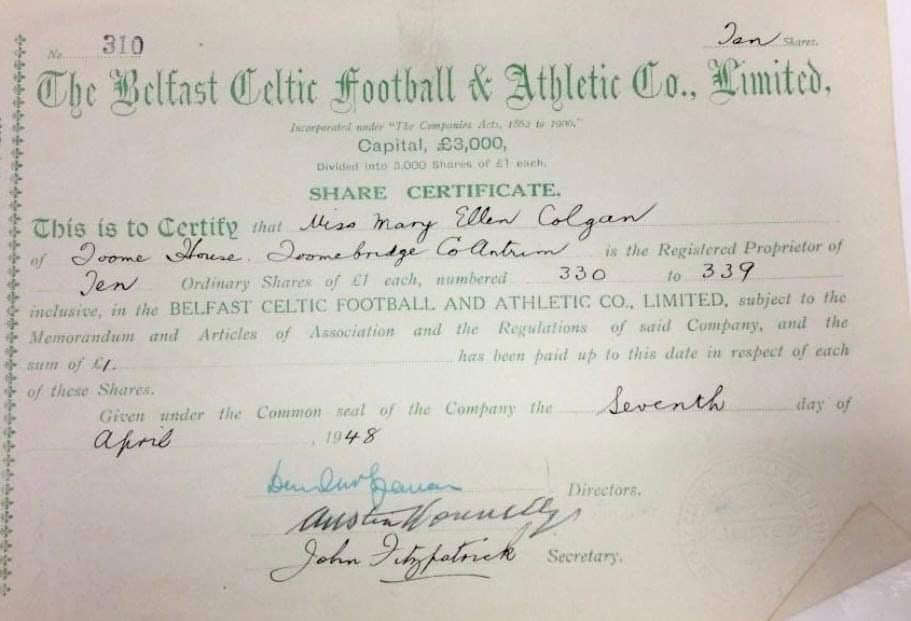 No. 310
Ten Shares.
The Belfast Celtic Football & Athletic Co., Limited,
Incorporated under "The Companies Acts, 1862 to 1900."
Capital, £3,000,
Divided into 3,000 Shares of £1 each.
SHARE CERTIFICATE.
This is to Certify that Miss Mary Ellen Colgan
of Toome House. Toomebridge Co Antrim is the Registered Proprietor of
Ten Ordinary Shares of £1 each, numbered 330 to 339
inclusive, in the BELFAST CELTIC FOOTBALL AND ATHLETIC CO., LIMITED, subject to the
Memorandum and Articles of Association and the Regulations of said Company, and the
sum of £1. has been paid up to this date in respect of each
of these Shares.
Given under the Common seal of the Company the Seventh day of
April, 1948
Directors.
Austin Donnelly
John Fitzpatrick Secretary.